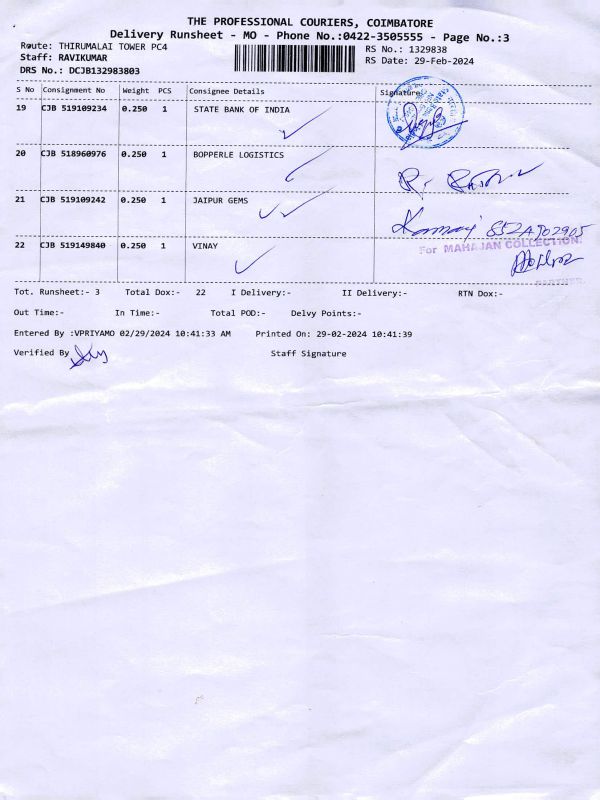 THE PROFESSIONAL COURIERS, COIMBATORE
Delivery Runsheet - MO - Phone No.:0422-3505555 - Page No.:3
Route: THIRUMALAI TOWER PC4 RS No.: 1329838
Staff: RAVIKUMAR RS Date: 29-Feb-2024
DRS No.: DCJB132983803
S No Consignment No Weight PCS Consignee Details Signature
19 CJB 519109234 0.250 1 STATE BANK OF INDIA
20 CJB 518960976 0.250 1 BOPPERLE LOGISTICS
21 CJB 519109242 0.250 1 JAIPUR GEMS
For MAHAJAN COLLECTION.
22 CJB 519149840 0.250 1 VINAY
PARTNER.
Tot. Runsheet:- 3 Total Dox:- 22 I Delivery:- II Delivery:- RTN Dox:-
Out Time:- In Time:- Total POD:- Delvy Points:-
Entered By :VPRIYAMO 02/29/2024 10:41:33 AM Printed On: 29-02-2024 10:41:39
Verified By Staff Signature